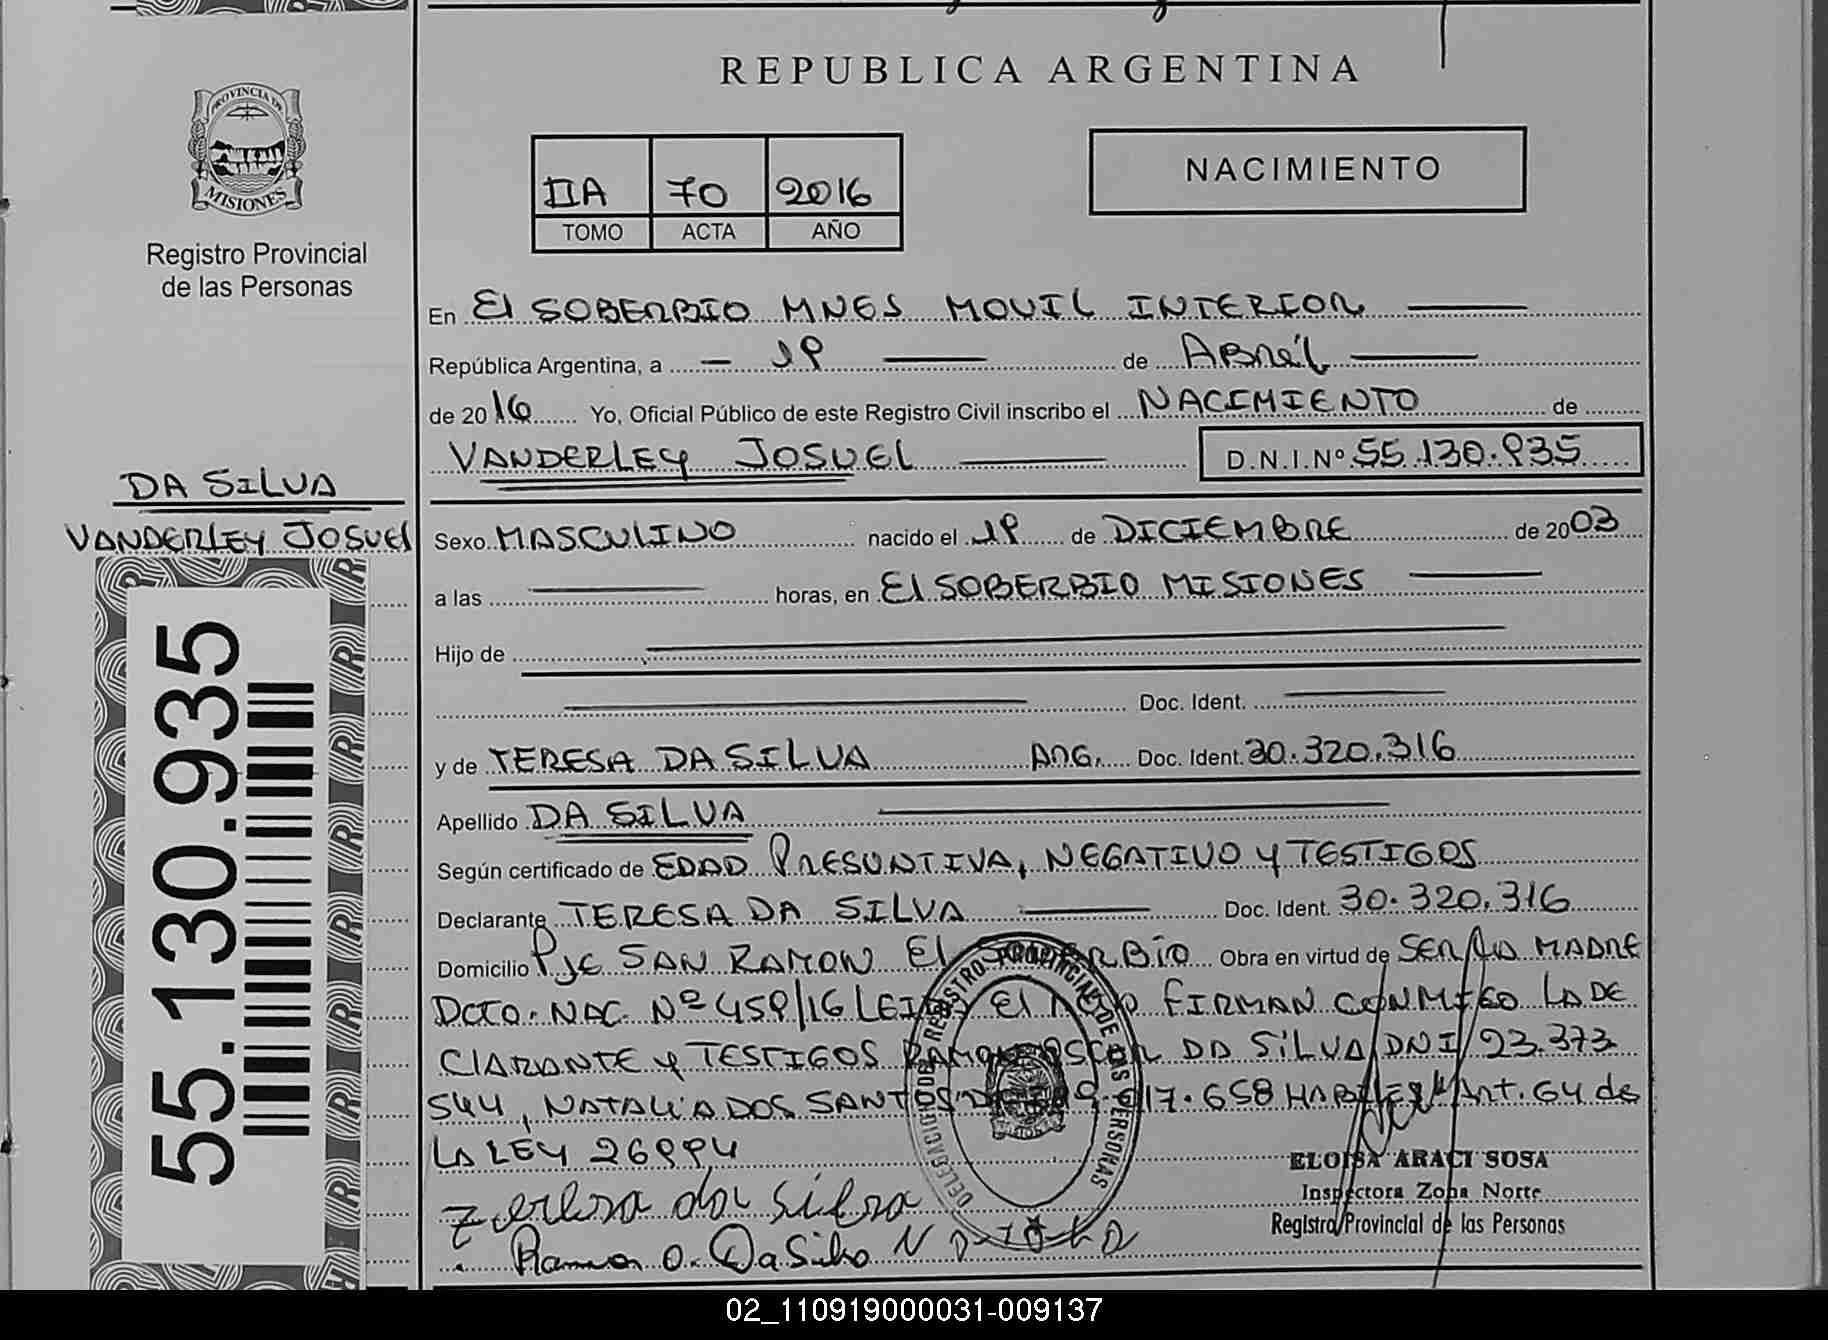 REPUBLICA ARGENTINA
PROVINCIA DE
MISIONES
Registro Provincial
de las Personas
IIA 70 2016
TOMO ACTA AÑO
NACIMIENTO
En El SOBERBIO MNES MOVIL INTERIOR
República Argentina, a 19 de Abril
de 2016 Yo, Oficial Público de este Registro Civil inscribo el NACIMIENTO de
VANDERLEY JOSUEL D.N.I.Nº 55.130.935
DA SILVA
VANDERLEY JOSUEL
55.130.935
Sexo MASCULINO nacido el 19 de DICIEMBRE de 2003
a las horas, en El SOBERBIO MISIONES
Hijo de
Doc. Ident.
y de TERESA DA SILVA ARG. Doc. Ident. 30.320.316
Apellido DA SILVA
Según certificado de EDAD PRESUNTIVA, NEGATIVO y TESTIGOS
Declarante TERESA DA SILVA Doc. Ident. 30.320.316
Domicilio Pje SAN RAMON El SOBERBIO Obra en virtud de SER LA MADRE
DCTO. NAC. Nº 459/16 LEIDA El ACTA FIRMAN CONMIGO LA DE
CLARANTE y TESTIGOS RAMON OSCAR DA SILVA DNI 23.373.
544, NATALIA DOS SANTOS 617.658 HABILES Art. 64 de
LA LEY 26994
DELEGACION DE REGISTRO PROVINCIAL DE LAS PERSONAS
MISIONES
ELOISA ARACI SOSA
Inspectora Zona Norte
Registro Provincial de las Personas
da silva
Ramon O. Da Silva
02_110919000031-009137